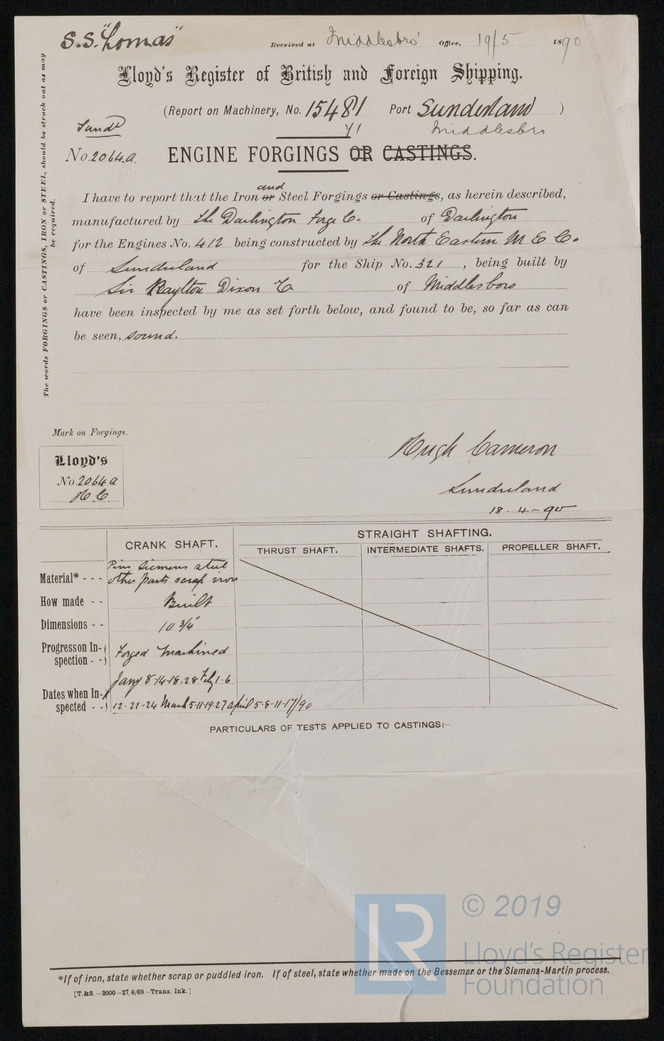 S.S. "Lomas"
Received at Middlesbro' Office, 19/5 1890
Lloyd's Register of British and Foreign Shipping.
(Report on Machinery, No. 15481 Port Sunderland )
Middlesbro
Sundd
No. 2064a ENGINE FORGINGS OR CASTINGS.
The words FORGINGS or CASTINGS, IRON or STEEL, should be struck out as may be required.
I have to report that the Iron or and Steel Forgings or Castings, as herein described,
manufactured by The Darlington Forge Co. of Darlington
for the Engines No. 412 being constructed by The North Eastern M E Co.
of Sunderland for the Ship No. 321, being built by
Sir Raylton Dixon & Co of Middlesbro
have been inspected by me as set forth below, and found to be, so far as can
be seen, sound.
Mark on Forgings.
Lloyd's
No. 2064a
H.C.
Hugh Cameron
Sunderland
18-4-90
CRANK SHAFT. STRAIGHT SHAFTING.
THRUST SHAFT. INTERMEDIATE SHAFTS. PROPELLER SHAFT.
Material* - - - Pins Siemens steel
other parts scrap iron
How made - - Built
Dimensions - - 10 3/4"
Progress on In-
spection - - Forged Machined
Dates when In-
spected - - Jany 8-14-18-28 Feby 1-6
12-21-24 March 5-11-19-27 April 5-8-11-17/90
PARTICULARS OF TESTS APPLIED TO CASTINGS:—
*If of iron, state whether scrap or puddled iron. If of steel, state whether made on the Bessemer or the Siemens-Martin process.
[T.&S.—2000—27/6/89—Trans. Ink.]
LR
© 2019
Lloyd's Register
Foundation